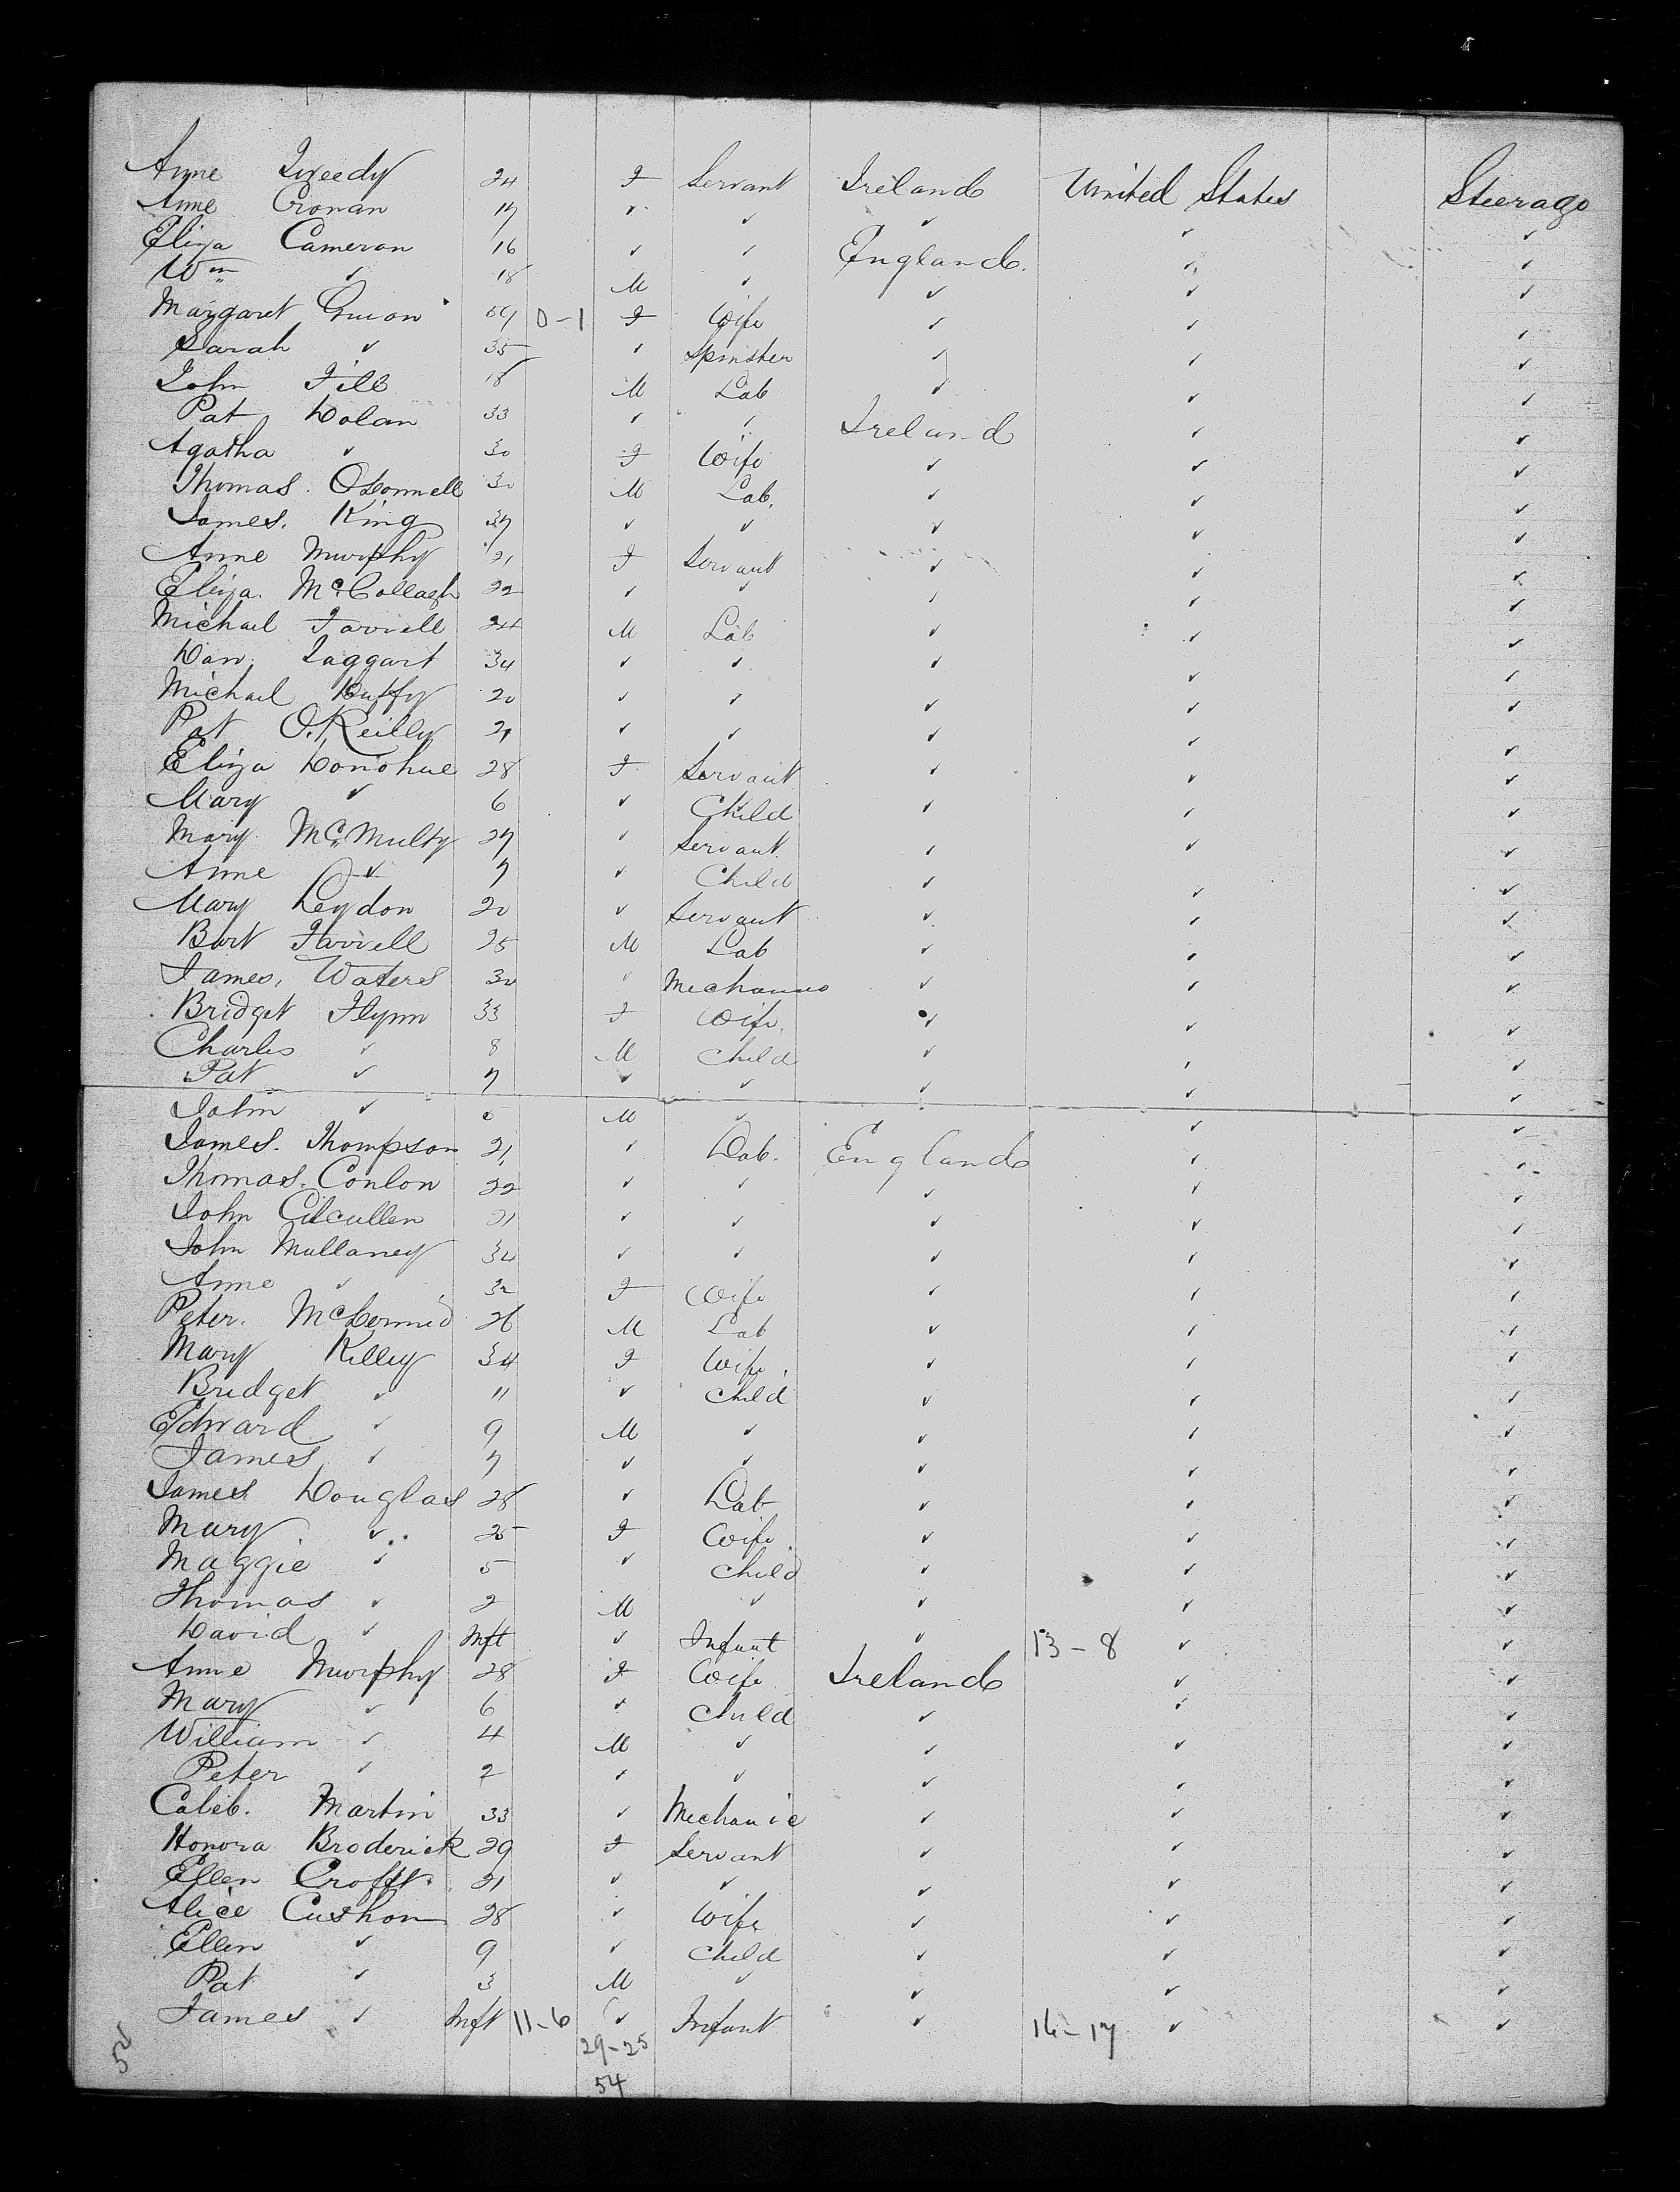 Anne Tweedy 24 F Servant Ireland United States Steerage
Anne Cronan 17 ✓ ✓ ✓ ✓ ✓
Eliza Cameron 16 ✓ ✓ England. ✓ ✓
Wm ✓ 18 M ✓ ✓ ✓ ✓
Margaret Guion 59 0-1 F Wife ✓ ✓ ✓
Sarah ✓ 35 ✓ Spinster ✓ ✓ ✓
John 18 M Lab ✓ ✓ ✓
Pat Dolan 33 ✓ ✓ Ireland ✓ ✓
Agatha ✓ 30 F Wife ✓ ✓ ✓
Thomas. O'Donnell 30 M Lab. ✓ ✓ ✓
James. King 37 ✓ ✓ ✓ ✓ ✓
Anne Murphy 21 F Servant ✓ ✓ ✓
Eliza. McCollagh 22 ✓ ✓ ✓ ✓ ✓
Michael Farrell 24 M Lab ✓ ✓ ✓
Dan. Taggart 34 ✓ ✓ ✓ ✓ ✓
Michael Duffy 20 ✓ ✓ ✓ ✓ ✓
Pat O.Reilly 21 ✓ ✓ ✓ ✓ ✓
Eliza Donohue 28 F Servant ✓ ✓ ✓
Mary ✓ 6 ✓ Child ✓ ✓ ✓
Mary McMulty 27 ✓ Servant ✓ ✓ ✓
Anne ✓ 7 ✓ Child ✓ ✓ ✓
Mary Leydon 20 ✓ Servant ✓ ✓ ✓
Bart Farrell 25 M Lab ✓ ✓ ✓
James, Waters 30 ✓ Mechanic ✓ ✓ ✓
Bridget Flynn 33 F Wife. ✓ ✓ ✓
Charles ✓ 8 M Child ✓ ✓ ✓
Pat ✓ 7 ✓ ✓ ✓ ✓ ✓
John ✓ M ✓ ✓ ✓
James. Thompson 21 ✓ Lab. England ✓ ✓
Thomas. Conlon 22 ✓ ✓ ✓ ✓ ✓
John Cilcullen 21 ✓ ✓ ✓ ✓ ✓
John Mullaney 32 ✓ ✓ ✓ ✓ ✓
Anne ✓ 32 F Wife ✓ ✓ ✓
Peter. McDermid 26 M Lab ✓ ✓ ✓
Mary Killey 34 F Wife. ✓ ✓ ✓
Bridget ✓ 11 ✓ Child ✓ ✓ ✓
Edward ✓ 9 M ✓ ✓ ✓ ✓
James ✓ 7 ✓ ✓ ✓ ✓ ✓
James Douglas 28 ✓ Lab ✓ ✓ ✓
Mary ✓ 25 F Wife ✓ ✓ ✓
Maggie ✓ 5 ✓ Child ✓ ✓ ✓
Thomas ✓ 2 M ✓ ✓ ✓ ✓
David ✓ Inft ✓ Infant ✓ 13-8 ✓ ✓
Anne Murphy 28 F Wife Ireland ✓ ✓
Mary ✓ 6 ✓ Child ✓ ✓ ✓
William ✓ 4 M ✓ ✓ ✓ ✓
Peter ✓ 2 ✓ ✓ ✓ ✓ ✓
Caleb. Martin 33 ✓ Mechanic ✓ ✓ ✓
Honora Broderick 29 F Servant ✓ ✓ ✓
Ellen Crofft 21 ✓ ✓ ✓ ✓ ✓
Alice Cushon 28 ✓ Wife ✓ ✓ ✓
Ellen ✓ 9 ✓ Child ✓ ✓ ✓
Pat ✓ 3 M ✓ ✓ ✓ ✓
James ✓ Inft 11-6 ✓ Infant ✓ 16-17 ✓ ✓
29-25
54